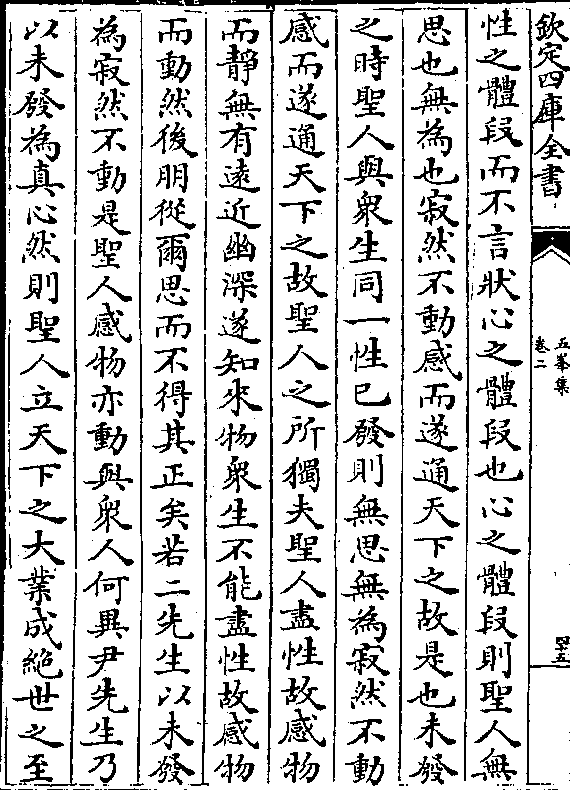 欽定四庫全書
五峯集
卷二
四十五
性之體段而不言狀心之體段也心之體段則聖人無
思也無為也寂然不動感而遂通天下之故是也未發
之時聖人與衆生同一性已發則無思無為寂然不動
感而遂通天下之故聖人之所獨夫聖人盡性故感物
而靜無有遠近幽深遂知來物衆生不能盡性故感物
而動然後朋從爾思而不得其正矣若二先生以未發
為寂然不動是聖人感物亦動與衆人何異尹先生乃
以未發為真心然則聖人立天下之大業成絶世之至